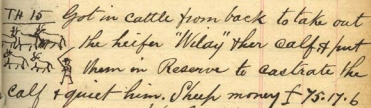 TH 15 Got in cattle from back to take out
the heifer "Wilay" & her calf & put
them in Reserve to castrate the
calf & quiet him. Sheep money £75.17.6